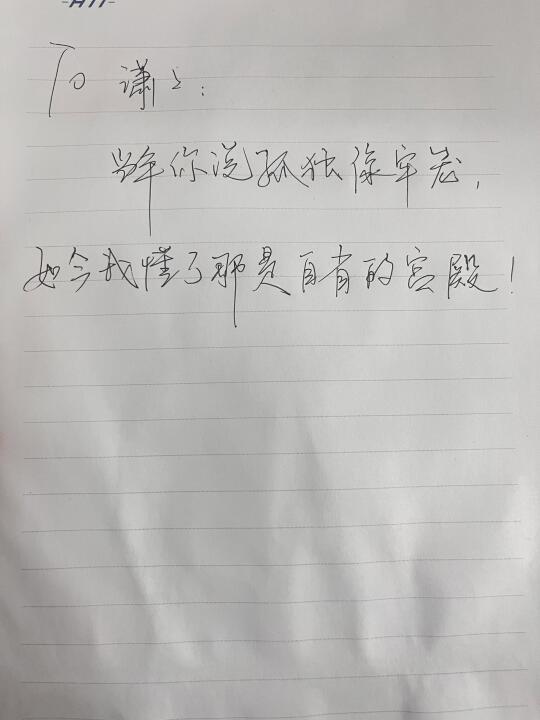 To 潇潇:
当年你说孤独像牢宠,
如今我懂了那是自省的宫殿!